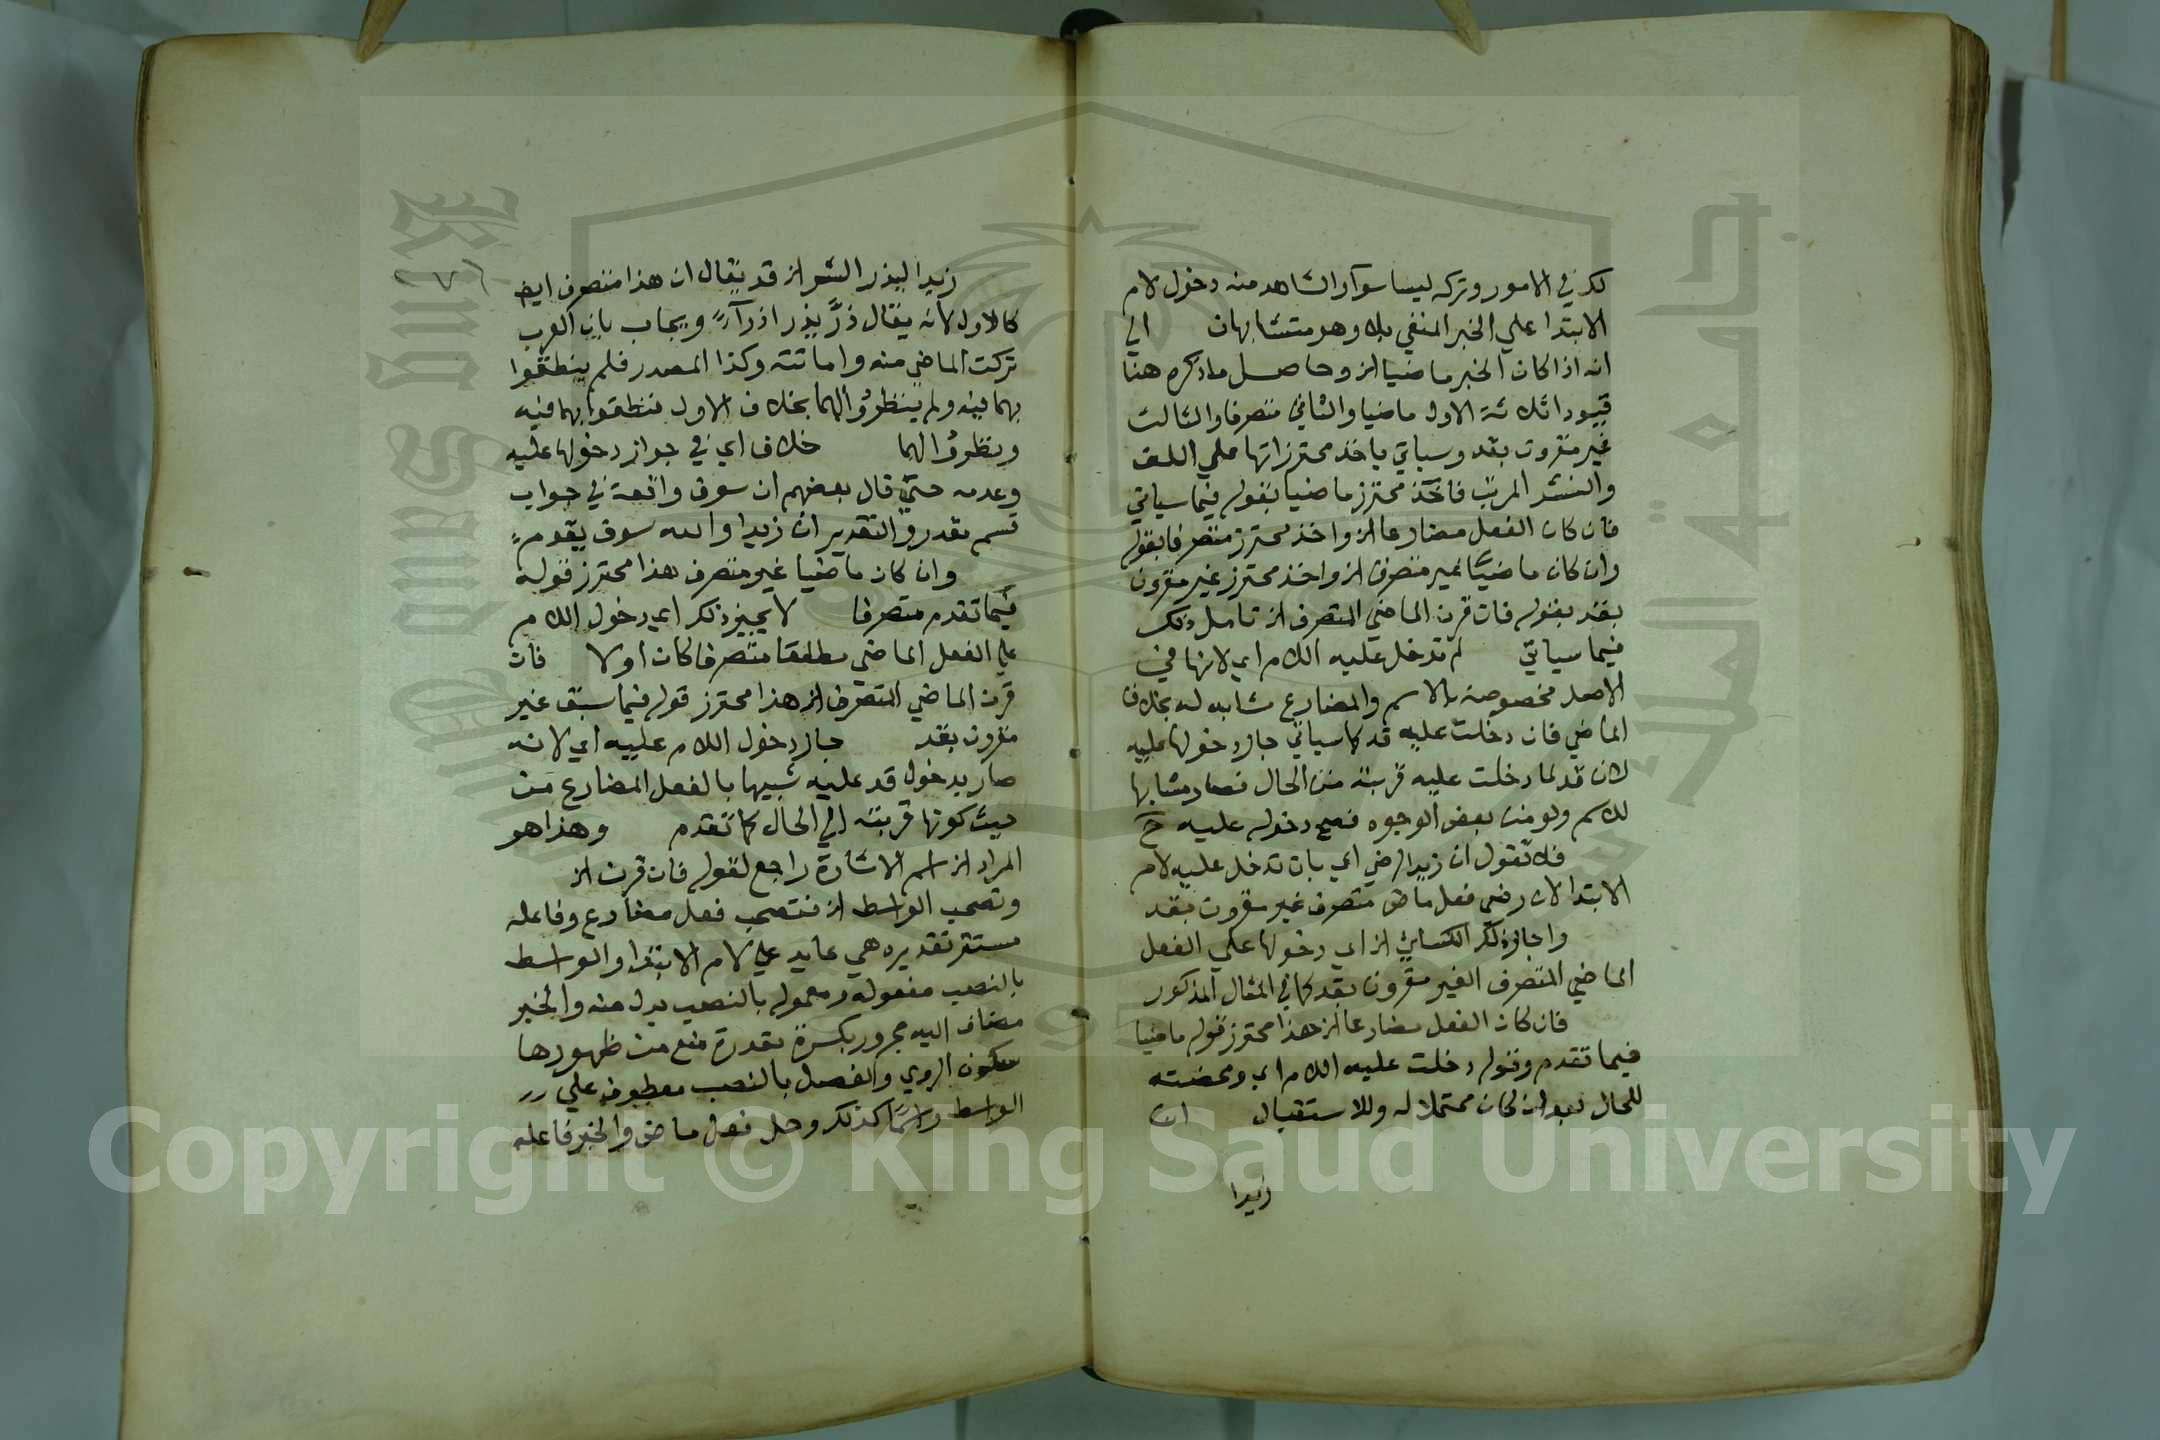 لكن في الامور وتركه ليسا سوآ والشاهد منه دخول لام
الابتدا علي الخبر المنفي بلا وهو متشابهان الي
انه اذا كان الخبر ماضيا الز وحاصل ماذكره هنا
قيودا ثلاثة الاول ماضيا والثاني متصرفا والثالث
غير مقرون بقد وسياتي ياخذ محترزاتها علي اللف
والنشر المرتب فاخذ محترز ماضيا بقوله فيما سياتي
فان كان الفعل مضارعا الز واخذ محترز متصرفا بقوله
وان كان ماضيا غير متصرف الز واخذ محترز غير مقرون
بقد بقوله فان قرن الماضي المتصرف الز تامل ذلك
فيما سياتي لم تدخل عليه اللام اي لانها في
الاصل مخصوصة بالاسم والمضارع مشابه له بخلاف
الماضي فان دخلت عليه قد كما سياتي جاز دخولها عليه
لان قد لما دخلت عليه قربته من الحال فصار مشابها
للاسم ولو من بعض الوجوه فصح دخوله عليه ح
فلا تقول ان زيدا لرضي اي بان تدخل عليه لام
الابتدا لان رضي فعل ماض متصرف غير مقرون بقد
واجاز ذلك الكسائي الز اي دخولها علي الفعل
الماضي المتصرف الغير مقرون بقد كما في المثال المذكور
فان كان الفعل مضارعا الز هذا محترز قوله ماضيا
فيما تقدم وقوله دخلت عليه اللام اي ومحضته
للحال بعد ان كان محتملا له وللاستقبال ان
زيدا
زيدا ليذر الشر الز قد يقال ان هذا متصرف ايضا
كالاول لانه يقال ذرَّ يذر اذرآرًا ويجاب بان العرب
تركت الماضي منه واماتته وكذا المصدر فلم ينطقوا
بهما فيه ولم ينظروا الهما بخلاف الاول فنطقوا بهما فيه
ونظروا الهما خلاف اي في جواز دخولها عليه
وعدمه حتي قال بعضهم ان سوف واقعة في جواب
قسم مقدر والتقدير ان زيدا والله سوف يقوم
وان كان ماضيا غير متصرف هذا محترز قوله
فيما تقدم متصرفا لا يجيز ذلك اي دخول اللام
علي الفعل الماضي مطلقا متصرفا كان اولا فان
قرن الماضي المتصرف الز هذا محترز قوله فيما سبق غير
مقرون بقد جاز دخول اللام عليه اي لانه
صار بدخول قد عليه شبيها بالفعل المضارع من
حيث كونها قربته الي الحال كما تقدم وهذا هو
المراد الز اسم الاشارة راجع لقوله فان قرن الز
وتصحب الواسط الز فتصحب فعل مضارع وفاعله
مستتر تقديره هي عايد علي لام الابتدا والواسط
بالنصب مفعوله ومعموله بالنصب بدل منه والخبر
مضاف اليه مجرور بكسرة مقدرة منع من ظهورها
سكون الروي والفصل بالنصب معطوف علي
الواسط واسمًا كذلك وحل فعل ماض والخبر فاعله
Copyright © King Saud University